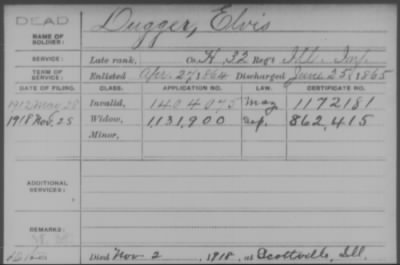 DEAD
NAME OF SOLDIER: Dugger, Elvis
SERVICE: Late rank, Co. H, 32 Reg't Ill. Inf.
TERM OF SERVICE: Enlisted Apr. 27, 1864 Discharged June 25, 1865
DATE OF FILING. CLASS. APPLICATION NO. LAW. CERTIFICATE NO.
1912 May 28 Invalid, 1404075 May 1172181
1918 Nov. 25 Widow, 1,131,900 862,415
Minor,
ADDITIONAL SERVICES:
REMARKS:
Died Nov 2, 1918, at Scottville, Ill.